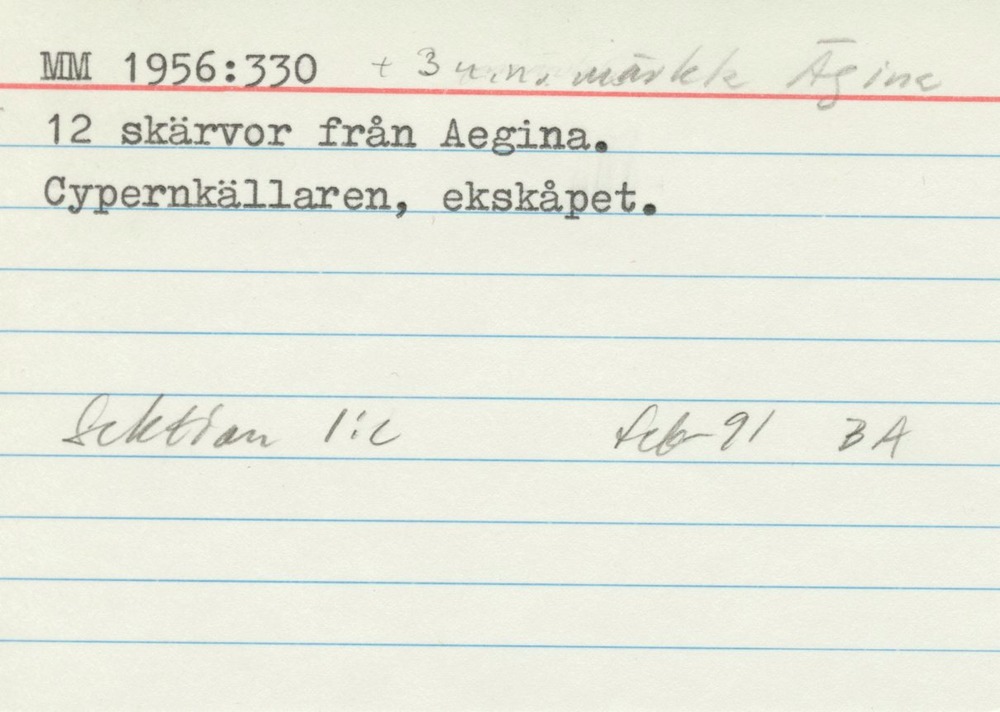 MM 1956:330 + 3 u.n. märkta Ägina
12 skärvor från Aegina.
Cypernkällaren, ekskåpet.
Sektion 1:c feb-91 BA